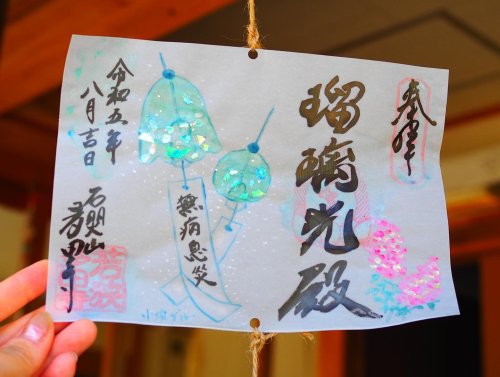 奉拝
瑠璃光殿
無病息笑
令和五年
八月吉日